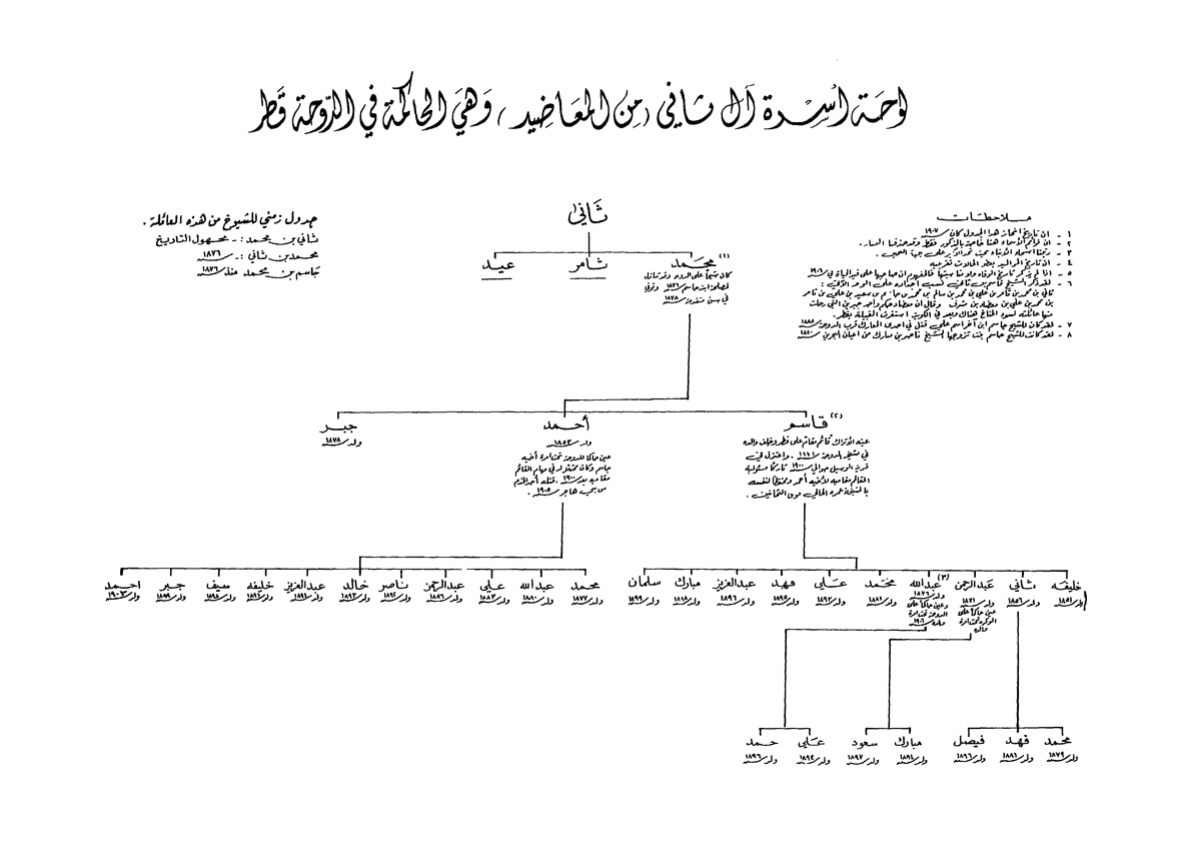 لوحة أسرة آل ثاني (من المعاضيد) وهي الحاكمة في الدوحة قطر
ملاحظات
١ - ان تاريخ انجاز هذا الجدول كان سنة ١٩٠٧
٢ - ان قوائم الأسماء هنا خاصة بالذكور فقط وقد حذفنا النساء .
٣ - رتبنا أسماء الأبناء بحيث نجد الأكبر على جهة اليمين .
٤ - ان تاريخ المواليد بعض الحالات تقريبية
٥ - اذا لم يذكر تاريخ الوفاة ولا مناسبتها فالمفهوم ان صاحبها على قيد الحياة في سنة ١٩٠٦
٦ - لقد ذكر الشيخ قاسم بن ثاني نسب أجداده على الوجه الآتي :
ثاني بن محمد بن ثامر بن علي بن محمد بن سالم بن محمد بن جاسم بن سعيد بن علي بن ثامر
بن محمد بن علي بن معضاد بن مشرف
منها عائلته لسوء المناخ هناك وبعد في الكويت استقرت القبيلة بقطر .
٧ - لقد كان للشيخ جاسم ابن آخر اسمه علي قتل في احدى المعارك قرب الدوحة سنة ١٨٨٨
٨ - لقد كانت للشيخ جاسم بنت تزوجها الشيخ ناصر بن مبارك من اعيان البحرين سنة ١٨٨٠
جدول زمني للشيوخ من هذه العائلة .
ثاني بن محمد :ـ مجهول التاريخ
محمد بن ثاني :ـ سنة ١٨٧٦
جاسم بن محمد منذ سنة ١٨٧٦
ثاني
محمد (١)
ثامر
عيد
كان شيخا على الدوحة وقد تنازل
لمصلحة ابنه جاسم سنة ١٨٧٦ وتوفي
في سن متقدمة سنة ١٨٧٨
قاسم (٢)
أحمد
جبر
ولد سنة ١٨٥٣
ولد سنة ١٨٧٨
عينه الأتراك قائم مقام على قطر وخلف والده
في مشيخة الدوحة . واعتزل في
قرية الوسيل حوالي سنة ١٩٠٠ تاركا مسئولية
القائم مقامية لأخيه أحمد ومحتفظا لنفسه
بالمشيخة عمره الحالي فوق الثمانين .
عين حاكما للدوحة تحت إدارة أخيه
جاسم وكان مخولا له في مهام القائم
مقامية بعد سنة ١٩٠٠ . قتله أحد الخدم
من بني هاجر سنة ١٩٠٥ .
خليفه
ولد سنة ١٨٥١
ثاني
ولد سنة ١٨٥٦
عبدالرحمن
ولد سنة ١٨٧١
عين حاكما على
الوكره تحت إدارة
والده
عبدالله (٣)
ولد سنة ١٨٧٦
وعين حاكما على
الدوحة تحت إدارة
والده سنة ١٩٠٦
محمد
ولد سنة ١٨٨١
علي
ولد سنة ١٨٩٢
فهد
ولد سنة ١٨٩٥
عبدالعزيز
ولد سنة ١٨٩٦
مبارك
سلمان
ولد سنة ١٨٩٩
محمد
ولد سنة ١٨٧٧
عبدالله
ولد سنة ١٨٨٠
علي
ولد سنة ١٨٨٣
عبدالرحمن
ولد سنة ١٨٨٦
ناصر
خالد
ولد سنة ١٨٩٣
عبدالعزيز
خليفه
سيف
ولد سنة ١٨٩٨
جبر
احمد
ولد سنة ١٩٠٣
محمد
ولد سنة ١٨٧٩
فهد
ولد سنة ١٨٨١
فيصل
ولد سنة ١٨٩٦
مبارك
ولد سنة ١٨٩٤
سعود
ولد سنة ١٨٩٧
علي
ولد سنة ١٨٩٤
حمد
ولد سنة ١٨٩٦